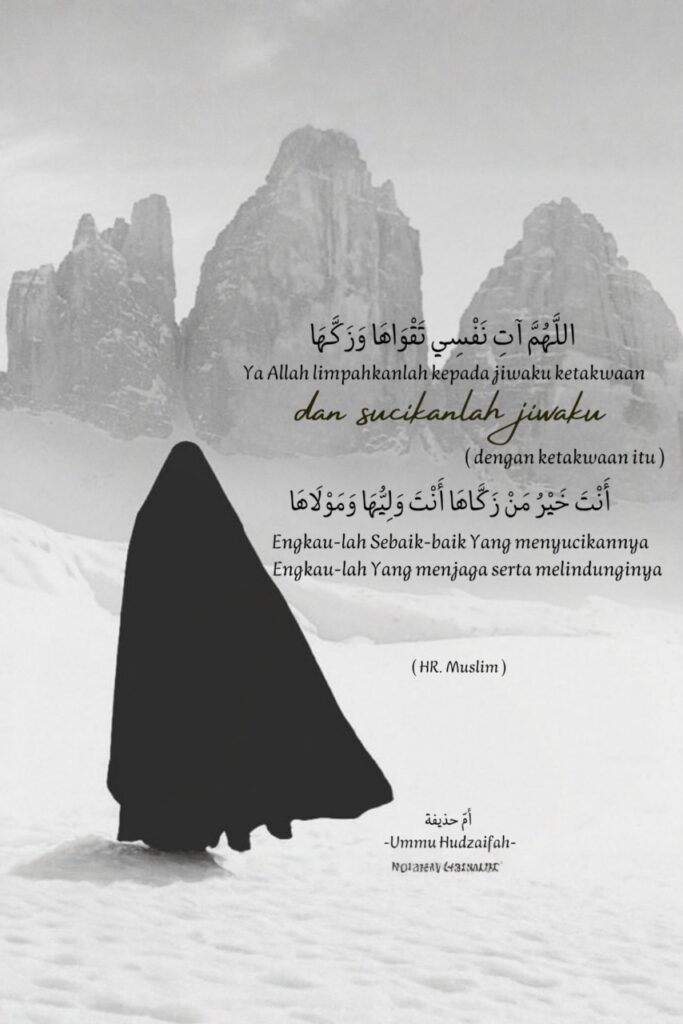 اللَّهُمَّ آتِ نَفْسِي تَقْوَاهَا وَزَكَّهَا
Ya Allah limpahkanlah kepada jiwaku ketakwaan
dan sucikanlah jiwaku
( dengan ketakwaan itu )
أَنْتَ خَيْرُ مَنْ زَكَّاهَا أَنْتَ وَلِيُّهَا وَمَوْلَاهَا
Engkau-lah Sebaik-baik Yang menyucikannya
Engkau-lah Yang menjaga serta melindunginya
( HR. Muslim )
أمّ حذيفة
-Ummu Hudzaifah-